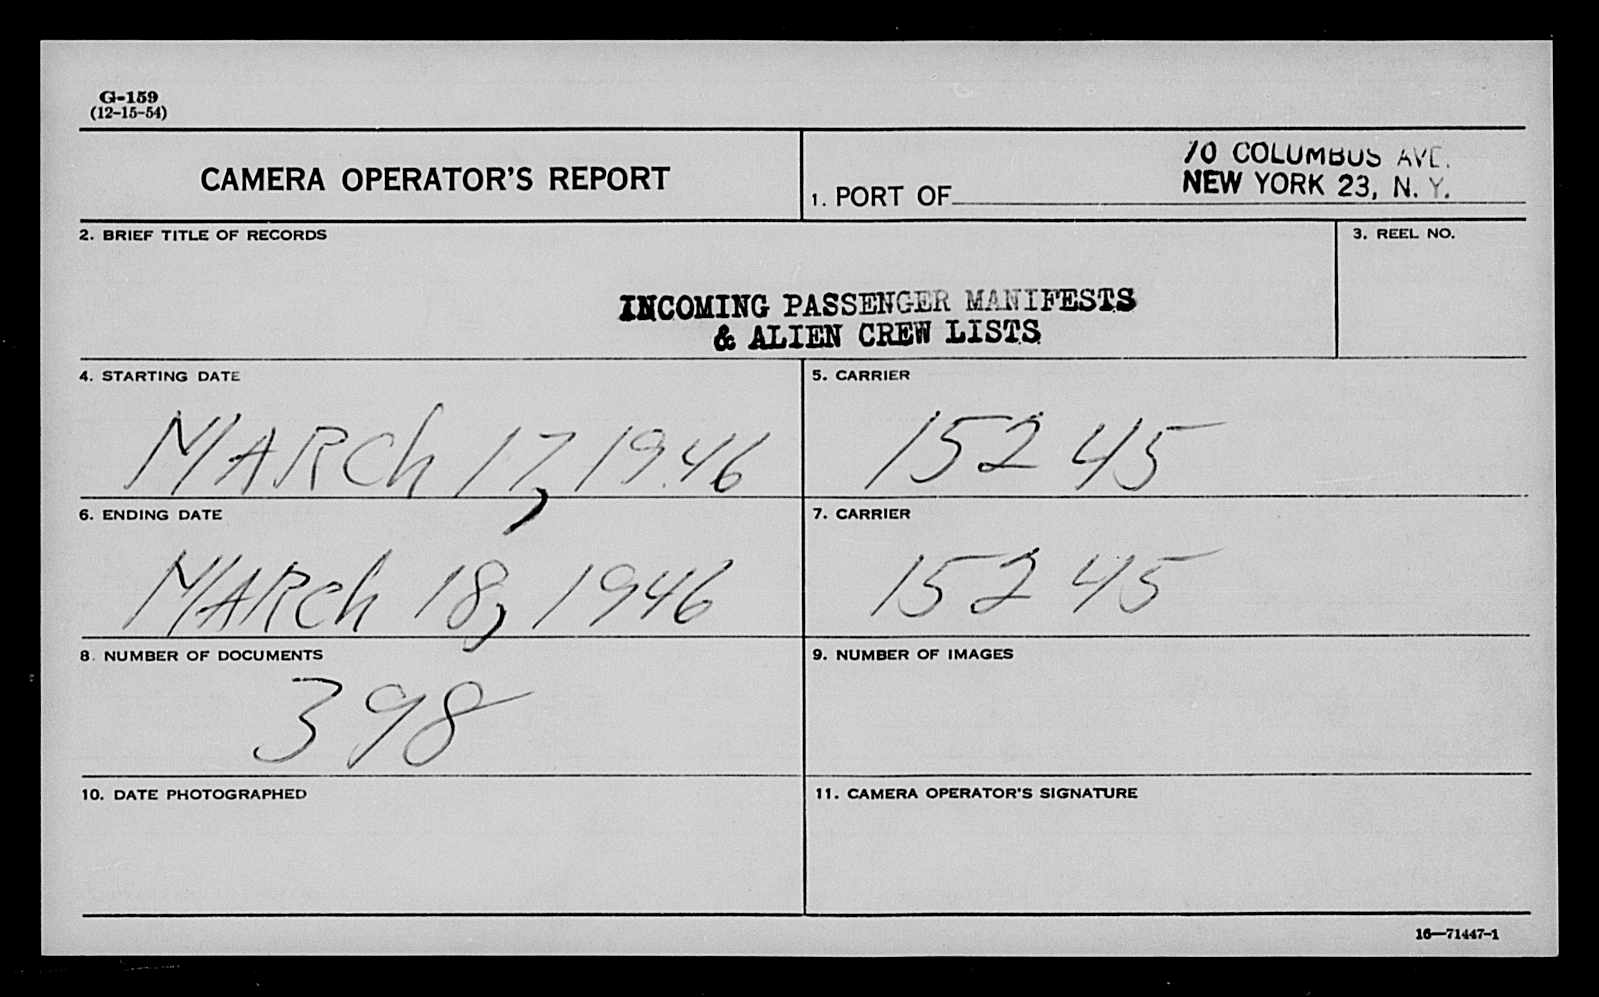 G-159
(12-15-54)
CAMERA OPERATOR'S REPORT
70 COLUMBUS AVE.
NEW YORK 23, N. Y.
1. PORT OF
2. BRIEF TITLE OF RECORDS
3. REEL NO.
INCOMING PASSENGER MANIFESTS
& ALIEN CREW LISTS
4. STARTING DATE
5. CARRIER
MARCh 17, 1946
152 45
6. ENDING DATE
7. CARRIER
MARCh 18, 1946
152 45
8. NUMBER OF DOCUMENTS
9. NUMBER OF IMAGES
398
10. DATE PHOTOGRAPHED
11. CAMERA OPERATOR'S SIGNATURE
16—71447-1